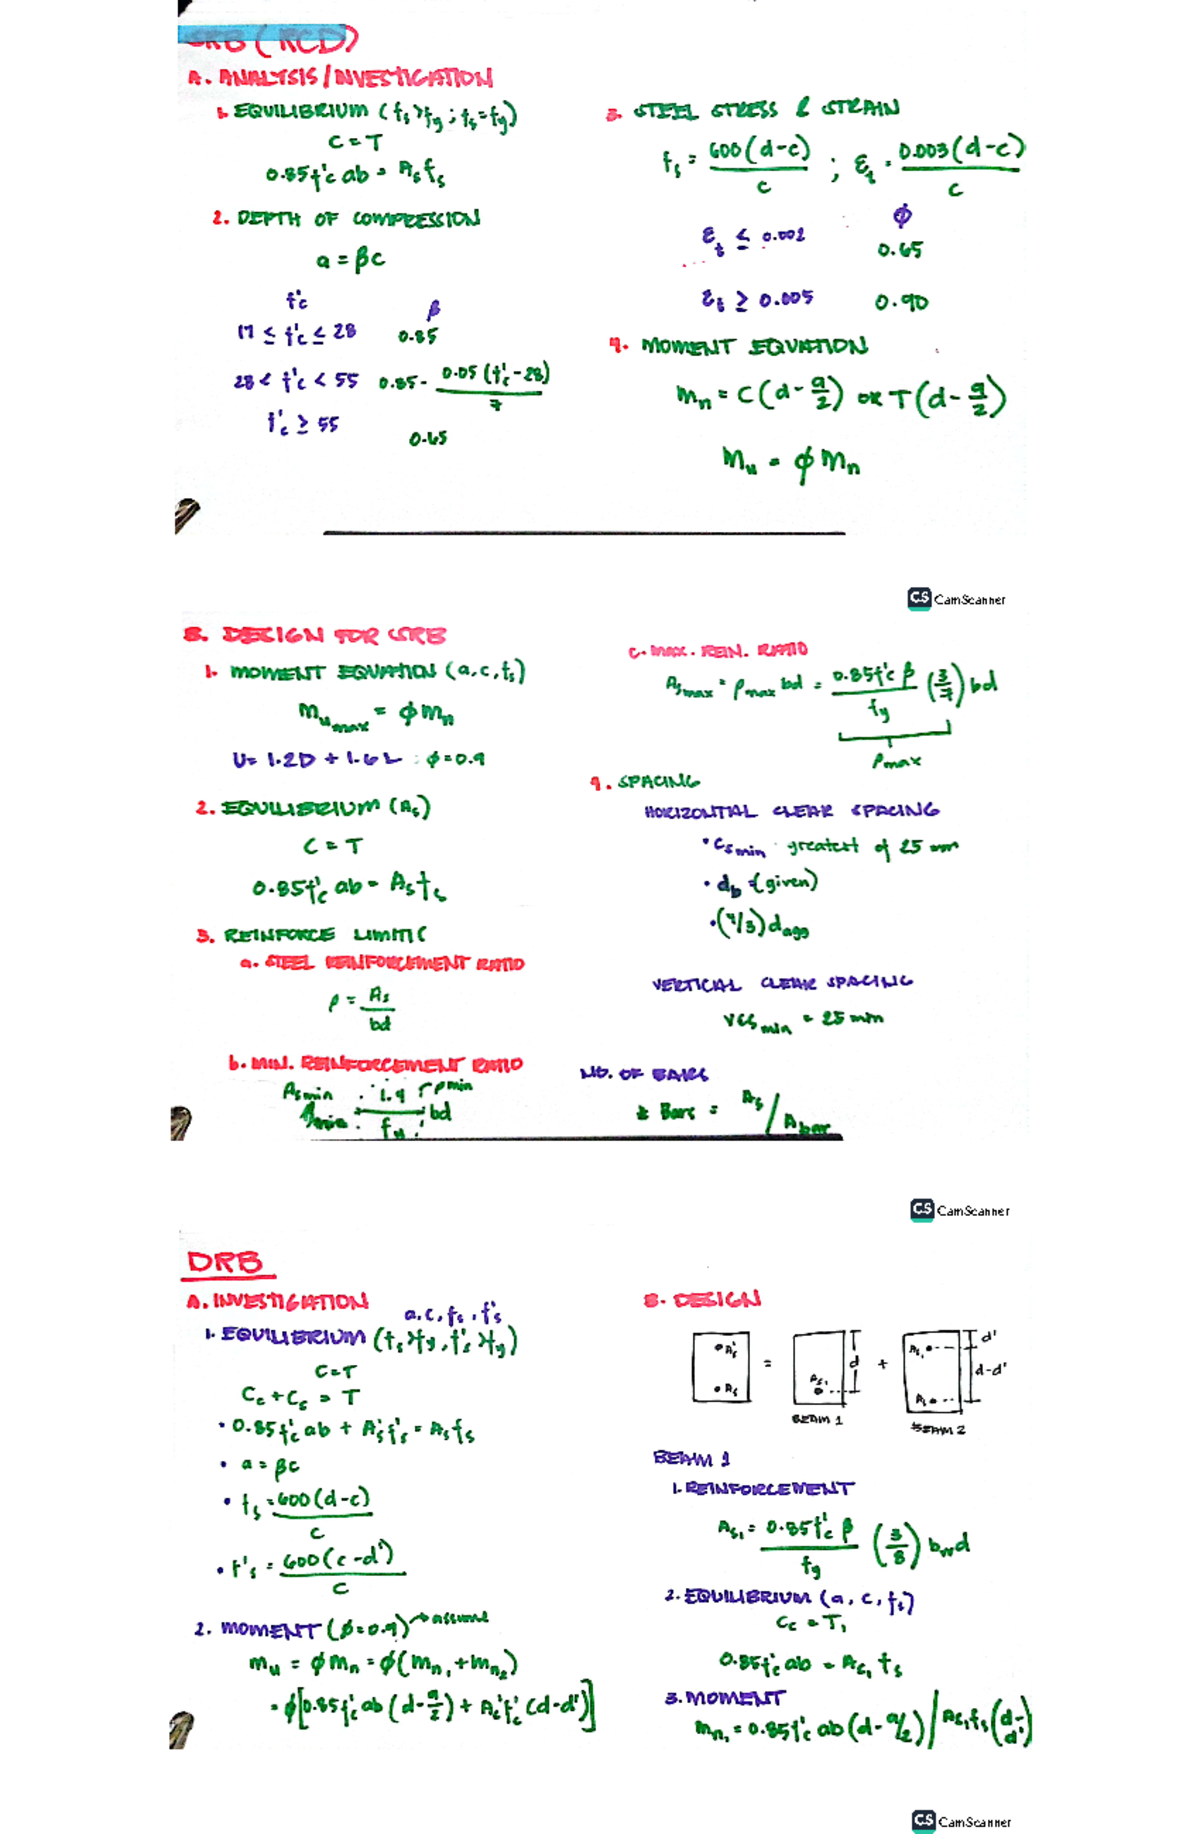 SRB (RCD)
A. ANALYSIS / INVESTIGATION
1. EQUILIBRIUM (fs>fy ; fs=fy)
C = T
0.85f'c ab = As fs
2. DEPTH OF COMPRESSION
a = βc
f'c β
17 ≤ f'c ≤ 28 0.85
28 < f'c < 55 0.85 - 0.05 (f'c - 28) / 7
f'c ≥ 55 0.65
3. STEEL STRESS & STRAIN
fs = 600 (d-c) / c ; εt = 0.003 (d-c) / c
φ
εt ≤ 0.002 0.65
εt ≥ 0.005 0.90
4. MOMENT EQUATION
Mn = C(d - a/2) or T(d - a/2)
Mu = φ Mn
CS CamScanner
B. DESIGN FOR SRB
1. MOMENT EQUATION (a, c, fs)
Mu max = φ Mn
U = 1.2D + 1.6L : φ = 0.9
2. EQUILIBRIUM (As)
C = T
0.85f'c ab = As fs
3. REINFORCE LIMITS
a. STEEL REINFORCEMENT RATIO
ρ = As / bd
b. MIN. REINFORCEMENT RATIO
As min 1.4 ρmin
fy bd
c. MAX. REIN. RATIO
As max = ρmax bd = 0.85f'c β / fy (3/7) bd
ρmax
4. SPACING
HORIZONTAL CLEAR SPACING
• CSmin greatest of 25 mm
• db = (given)
• (4/3) dagg
VERTICAL CLEAR SPACING
VCSmin = 25 mm
NO. OF BARS
# Bars = As / Abar
CS CamScanner
DRB
A. INVESTIGATION
a, c, fs, f's
1. EQUILIBRIUM (fs>fy, f's>fy)
C = T
Cc + Cs = T
• 0.85f'c ab + A's f's = As fs
• a = βc
• fs = 600 (d-c) / c
• f's = 600 (c-d') / c
2. MOMENT (φ = 0.9) → assume
Mu = φ Mn = φ (Mn1 + Mn2)
= φ [0.85f'c ab (d - a/2) + A's f's (d-d')]
B. DESIGN
A's As = As1 d + As As d' d-d'
BEAM 1 BEAM 2
BEAM 1
1. REINFORCEMENT
As1 = 0.85f'c β / fy (3/8) bwd
2. EQUILIBRIUM (a, c, fs)
Cc = T1
0.85f'c ab = As1 fs
3. MOMENT
Mn1 = 0.85f'c ab (d - a/2) / As1 fs (d - d')
CS CamScanner